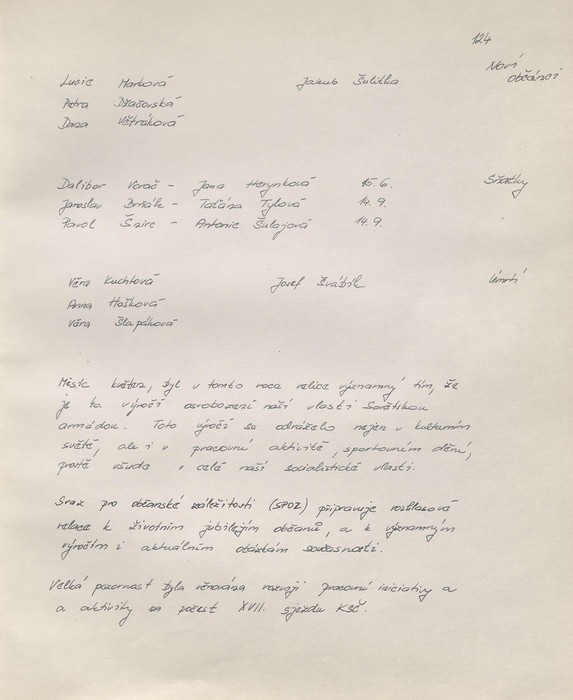 124
Noví
občánci
Lucie Marková Jakub Šulitka
Petra
Dana Větráková
Dalibor Vorač - Jana Harynková 15.6. Sňatky
Jaroslav - Taťána Tylová 14.9.
Pavol Šnirc - Antonie Šulajová 14.9.
Věra Kuchtová Josef Švábik Úmrtí
Anna Hošková
Věra Šlapáková
Měsíc květen, byl v tomto roce velice významný tím, že
je to výročí osvobození naší vlasti Sovětskou
armádou. Toto výročí se odráželo nejen v kulturním
světě, ale i v pracovní aktivitě, sportovním dění,
prostě všude v celé naší socialistické vlasti.
Svaz pro občanské záležitosti (SPOZ) připravuje rozhlasové
relace k životním jubilejím občanů, a k významným
výročím i aktuálním otázkám současnosti.
Velká pozornost byla věnována rozvoji pracovní iniciativy a
a aktivity na počest XVII. sjezdu KSČ.